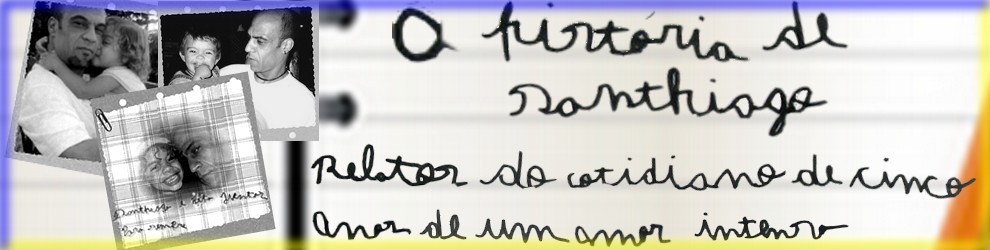 A história de
Santhiago
Relatos do cotidiano de cinco
anos de um amor intenso
Santhiago e juntos
Pra sempre